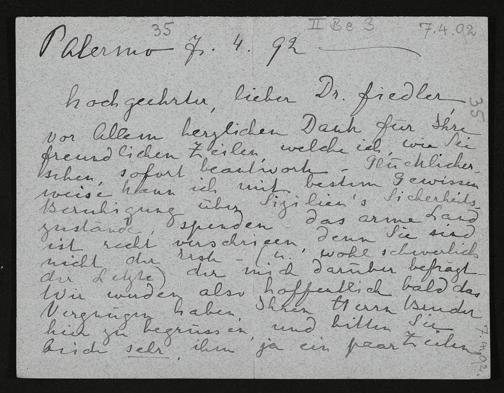 35
II Be 3
7.4.92
Palermo 7. 4. 92
Hochgeehrter, lieber Dr. Fiedler,
vor Allem herzlichen Dank für Ihre
freundlichen Zeilen welche ich, wie Sie
sehen, sofort beantworte. Glücklicher-
weise kann ich mit bestem Gewissen
Beruhigung über Sizilien's Sicherheits-
zustände, spenden. Das arme Land
ist recht verschrieen, denn Sie sind
nicht der erste (u. wohl schwerlich
der Letzte) der mich darüber befragt.
Wir würden also hoffentlich bald das
Vergnügen haben, Ihren Herrn Bruder
hier zu begrüssen, und bitten Sie
beide sehr, ihm ja ein paar Zeilen
35
7.IV.92.